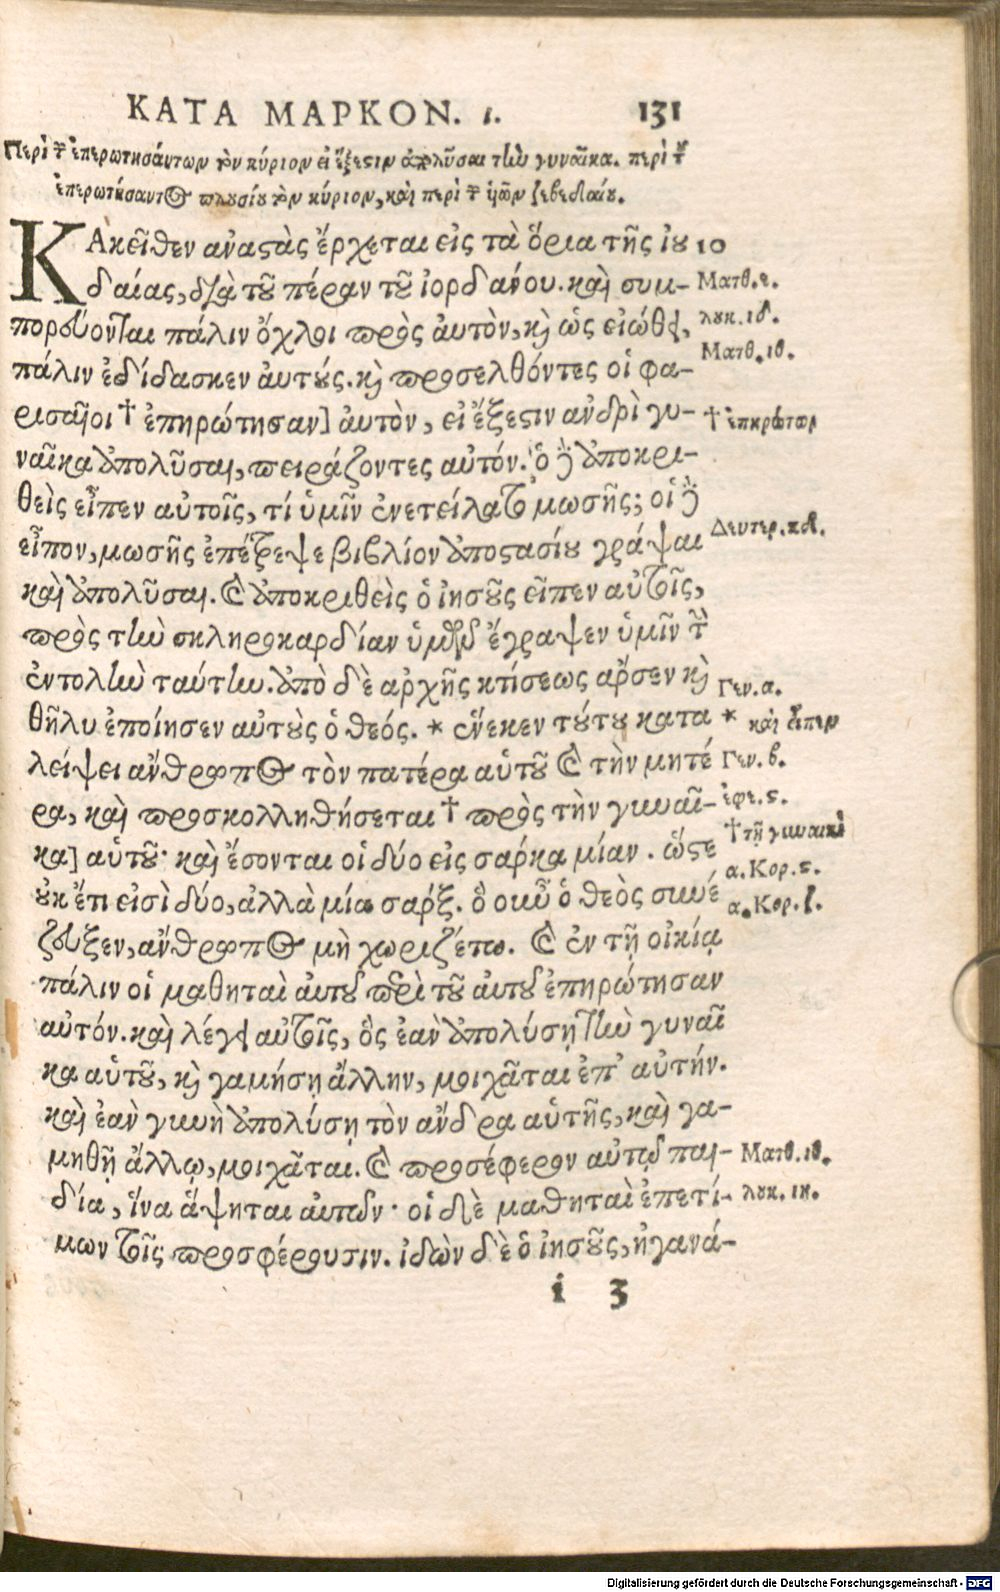 ΚΑΤΑ ΜΑΡΚΟΝ. ι. 131
Περὶ τῶν ἐπερωτησάντων τὸν κύριον εἰ ἔξεστιν ἀπολῦσαι τὴν γυναῖκα. περὶ τοῦ
ἐπερωτήσαντος πλουσίου τὸν κύριον, καὶ περὶ τῶν ὑῶν ζεβεδαίου.
ΚΑκεῖθεν ἀναστὰς ἔρχεται εἰς τὰ ὅρια τῆς ἰου 10
δαίας, διὰ τοῦ πέραν τοῦ ἰορδάνου. καὶ συμ- Ματθ. ε.
πορεύονται πάλιν ὄχλοι πρὸς ἀυτὸν, καὶ ὡς εἰώθει, λουκ. ιϛ.
πάλιν ἐδίδασκεν ἀυτούς. καὶ προσελθόντες οἱ φα- Ματθ. ιθ.
ρισαῖοι † ἐπηρώτησαν] ἀυτὸν, εἰ ἔξεστιν ἀνδρὶ γυ- † ἐπηρώτων
ναῖκα ἀπολῦσαι, πειράζοντες αὐτόν. ὁ δὲ ἀποκρι-
θεὶς εἶπεν αὐτοῖς, τί ὑμῖν ἐνετείλατο μωσῆς; οἱ δὲ
εἶπον, μωσῆς ἐπέτρεψε βιβλίον ἀποστασίου γράψαι Δευτερ. κδ.
καὶ ἀπολῦσαι. καὶ ἀποκριθεὶς ὁ ἰησοῦς εἶπεν αὐτοῖς,
πρὸς τὴν σκληροκαρδίαν ὑμῶν ἔγραψεν ὑμῖν τὴν
ἐντολὴν ταύτην. ἀπὸ δὲ ἀρχῆς κτίσεως ἄρσεν καὶ Γεν. α.
θῆλυ ἐποίησεν αὐτοὺς ὁ θεός. * ἕνεκεν τούτου κατα * καὶ εἶπεν
λείψει ἄνθρωπος τὸν πατέρα αὑτοῦ καὶ τὴν μητέ Γεν. β.
ρα, καὶ προσκολληθήσεται † πρὸς τὴν γυναῖ- ἐφε. ε.
κα] αὑτοῦ· καὶ ἔσονται οἱ δύο εἰς σάρκα μίαν. ὥστε † τῇ γυναικὶ
οὐκ ἔτι εἰσὶ δύο, ἀλλὰ μία σάρξ. ὃ οὖν ὁ θεὸς συνέ α. Κορ. ϛ.
ζευξεν, ἄνθρωπος μὴ χωριζέτω. καὶ ἐν τῇ οἰκίᾳ α. Κορ. ζ.
πάλιν οἱ μαθηταὶ ἀυτοῦ περὶ τοῦ ἀυτοῦ ἐπηρώτησαν
αὐτόν. καὶ λέγει αὐτοῖς, ὃς ἐὰν ἀπολύσῃ τὴν γυναῖ
κα αὑτοῦ, καὶ γαμήσῃ ἄλλην, μοιχᾶται ἐπ᾽ αὐτήν.
καὶ ἐὰν γυνὴ ἀπολύσῃ τὸν ἄνδρα αὑτῆς, καὶ γα-
μηθῇ ἄλλῳ, μοιχᾶται. καὶ προσέφερον αὐτῷ παι- Ματθ. ιθ.
δία, ἵνα ἅψηται ἀυτῶν· οἱ δὲ μαθηταὶ ἐπετί- λουκ. ιη.
μων τοῖς προσφέρουσιν. ἰδὼν δὲ ὁ ἰησοῦς, ἠγανά-
i 3
Digitalisierung gefördert durch die Deutsche Forschungsgemeinschaft - DFG